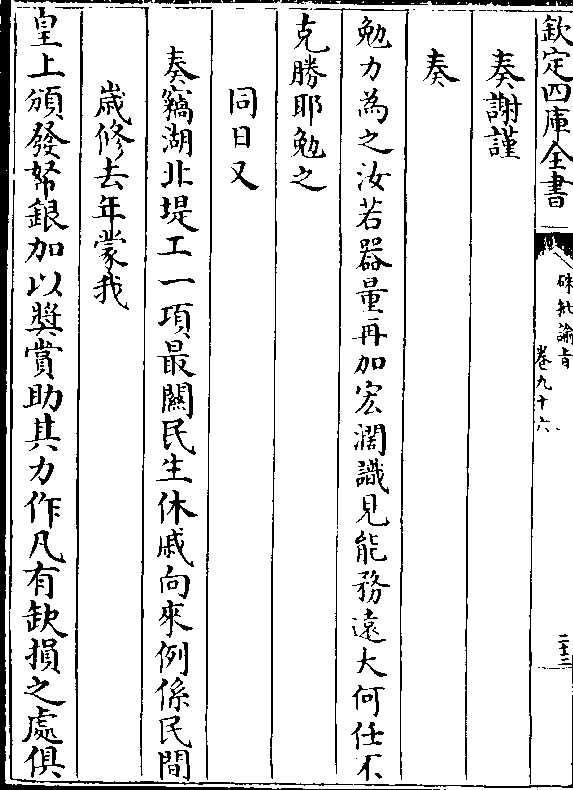 欽定四庫全書
硃批諭旨
卷九十六
二十三
奏謝謹
奏
勉力為之汝若器量再加宏濶識見能務遠大何任不
克勝耶勉之
同日又
奏竊湖北堤工一項最關民生休戚向來例係民間
歲修去年蒙我
皇上頒發帑銀加以奬賞助其力作凡有缺損之處俱